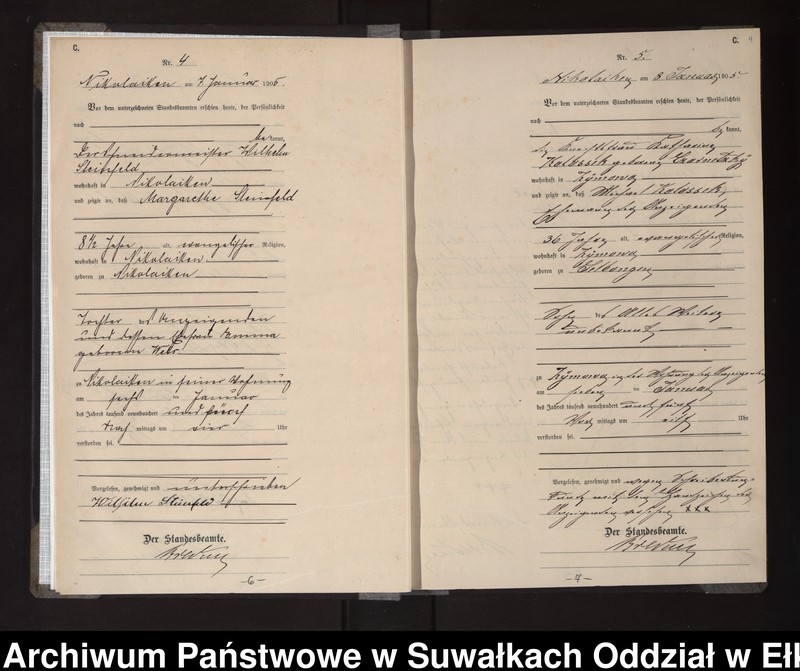 C.
Nr. 4
Nikolaiken am 7. Januar 1905.
Vor dem unterzeichneten Standesbeamten erschien heute, der Persönlichkeit
nach
be kannt,
Der Wilhelm
Steinfeld
wohnhaft in Nikolaiken
und zeigte an, daß Margarethe Steinfeld
8 1/2 Jahre alt, evangelischer Religion,
wohnhaft in Nikolaiken
geboren zu Nikolaiken
Tochter des Anzeigenden
und dessen Ehefrau Emma
geborenen
zu Nikolaiken in seiner Wohnung
am sechs ten Januar
des Jahres tausend neunhundert und fünf
Nach mittags um vier Uhr
verstorben sei.
Vorgelesen, genehmigt und unterschrieben
Wilhelm Steinfeld
Der Standesbeamte.
—6—
C.
4
Nr. 5.
Nikolaiken am 8 Januar 1905.
Vor dem unterzeichneten Standesbeamten erschien heute, der Persönlichkeit
nach
be kannt,
die Katharina
Kolossek geborene
wohnhaft in
und zeigte an, daß Michael Kolossek,
Ehemann der Anzeigenden
36 Jahre alt, evangelischer Religion,
wohnhaft in
geboren zu
Sohn des
unbekannt
zu in der Wohnung der Anzeigenden
am sieben ten Januar
des Jahres tausend neunhundert und fünf
Vor mittags um elf Uhr
verstorben sei.
Vorgelesen, genehmigt und wegen Schreibensun-
kunde mit dem Handzeichen der
Anzeigenden versehen. xxx
Der Standesbeamte.
—7—
Archiwum Państwowe w Suwałkach Oddział w Eł